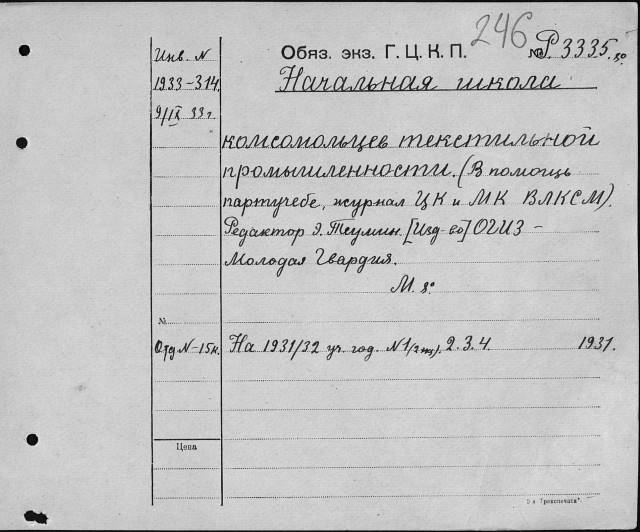 246
Инв. N
Обяз. экз. Г. Ц. К. П. № Р3335. 8°
1933-314.
Начальная школа
9/IX 33 г
комсомольцев текстильной
промышленности. (В помощь
партучебе, журнал ЦК и МК ВЛКСМ).
Редактор Э. Теумин. [Изд-во] ОГИЗ –
Молодая Гвардия.
М. 8°
№
Отд N-15к. На 1931/32 уч. год. N1 (2 экз). 2. 3. 4. 1931.
Цена